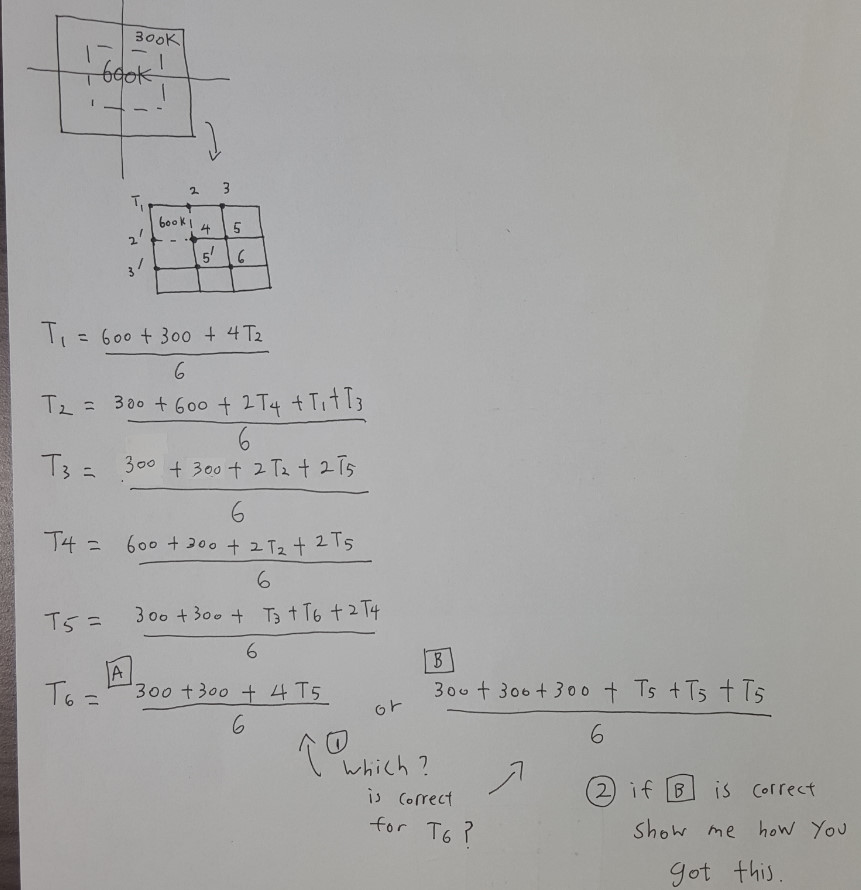 300K
600K
2 3
T1
600K 4 5
2'
5' 6
3'
T1 = 600 + 300 + 4T2
6
T2 = 300 + 600 + 2T4 + T1 + T3
6
T3 = 300 + 300 + 2T2 + 2T5
6
T4 = 600 + 300 + 2T2 + 2T5
6
T5 = 300 + 300 + T3 + T6 + 2T4
6
A B
T6 = 300 + 300 + 4T5 or 300 + 300 + 300 + T5 + T5 + T5
6 6
① which?
is correct
for T6?
② if B is correct
show me how you
got this.